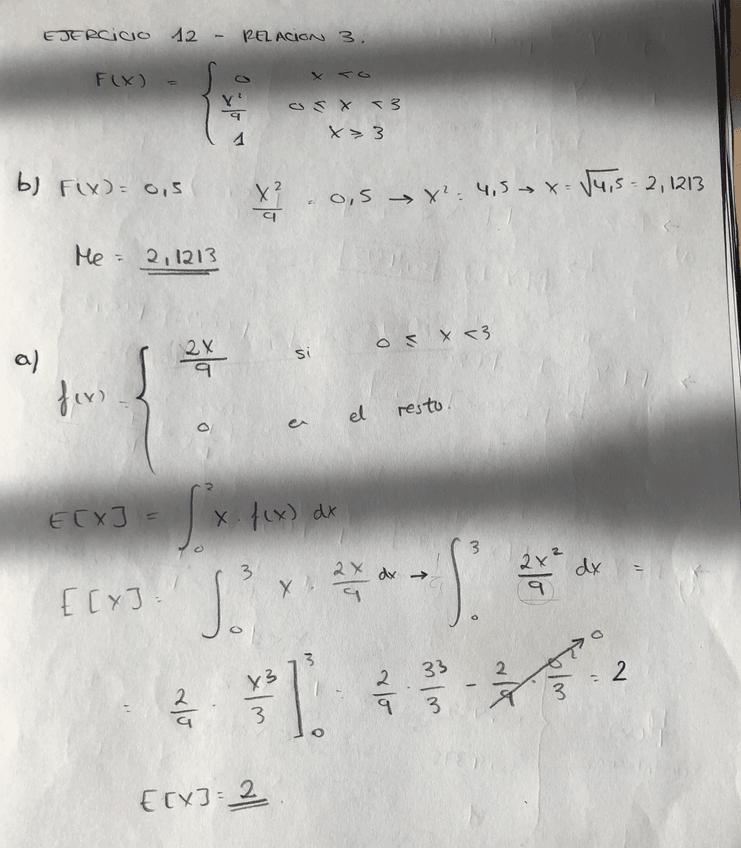 EJERCICIO 12 - RELACION 3.
F(X) = { 0 x < 0
x²/9 0 ≤ x < 3
1 x ≥ 3
b) F(X) = 0,5 x²/9 = 0,5 → x² = 4,5 → x = √4,5 = 2,1213
Me = 2,1213
a) f(x) = { 2x/9 si 0 ≤ x < 3
0 en el resto.
E[X] = ∫₀³ x · f(x) dx
E[X] = ∫₀³ x · 2x/9 dx → ∫₀³ 2x²/9 dx =
= 2/9 · x³/3 ]₀³ = 2/9 · 3³/3 - 2/9 · 0³/3 → 0 = 2
E[X] = 2